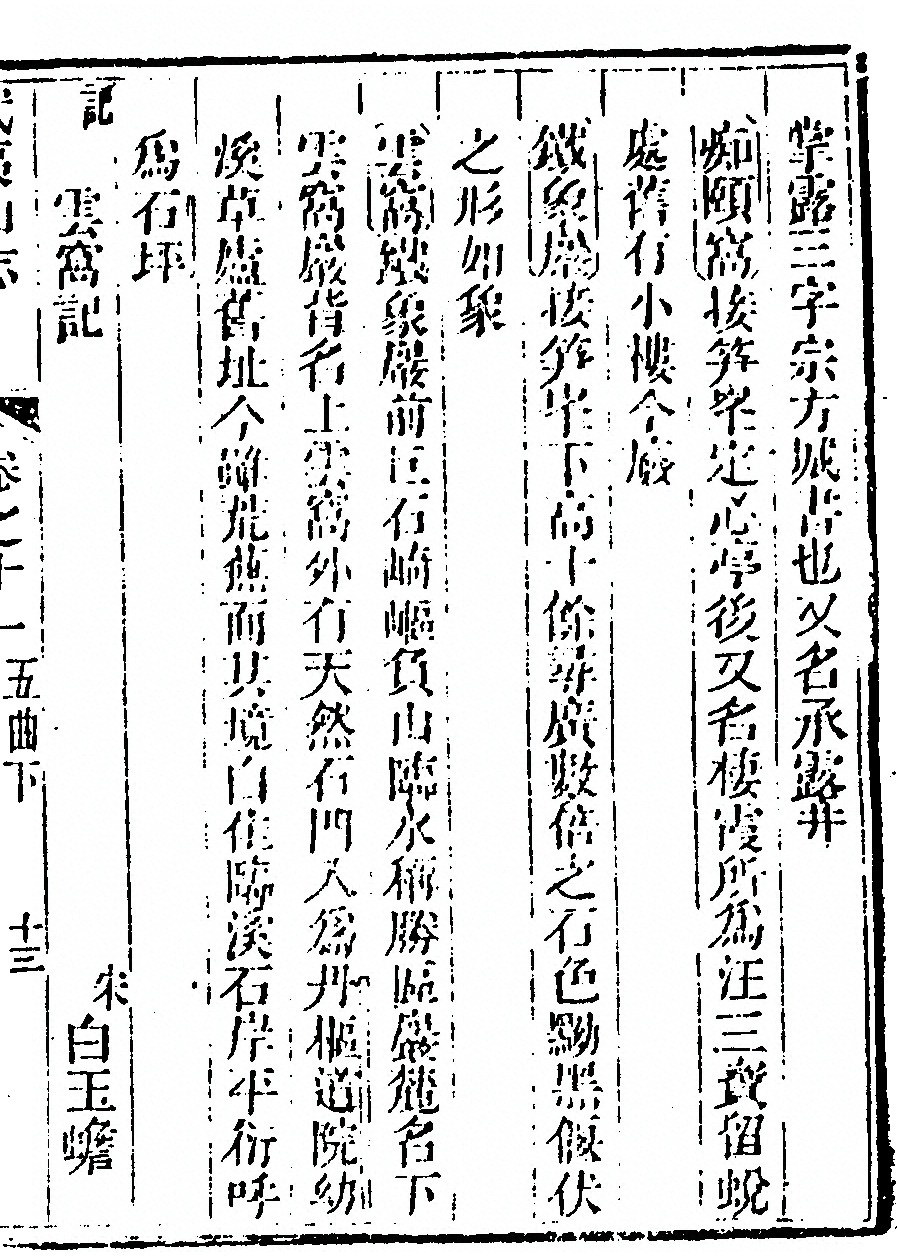 掌露三字宗方城書也又名承露井
痴頤窩接筍半定心亭後又名棲霞所為汪三寶留蛻
處舊有小樓今廢
鐵象巖接筍半下高十餘尋廣數倍之石色黝黑偃伏
之形如象
雲窩鐵象巖前巨石崎嶇負山臨水稱勝區巖麓名下
雲窩巖背名上雲窩外有天然石門入為丹樞道院幼
溪草廬舊址今雖荒蕪而其境自佳臨溪石岸平衍呼
為石坪
記
雲窩記 宋白玉蟾
武夷山志 卷之十一 五曲下 十三